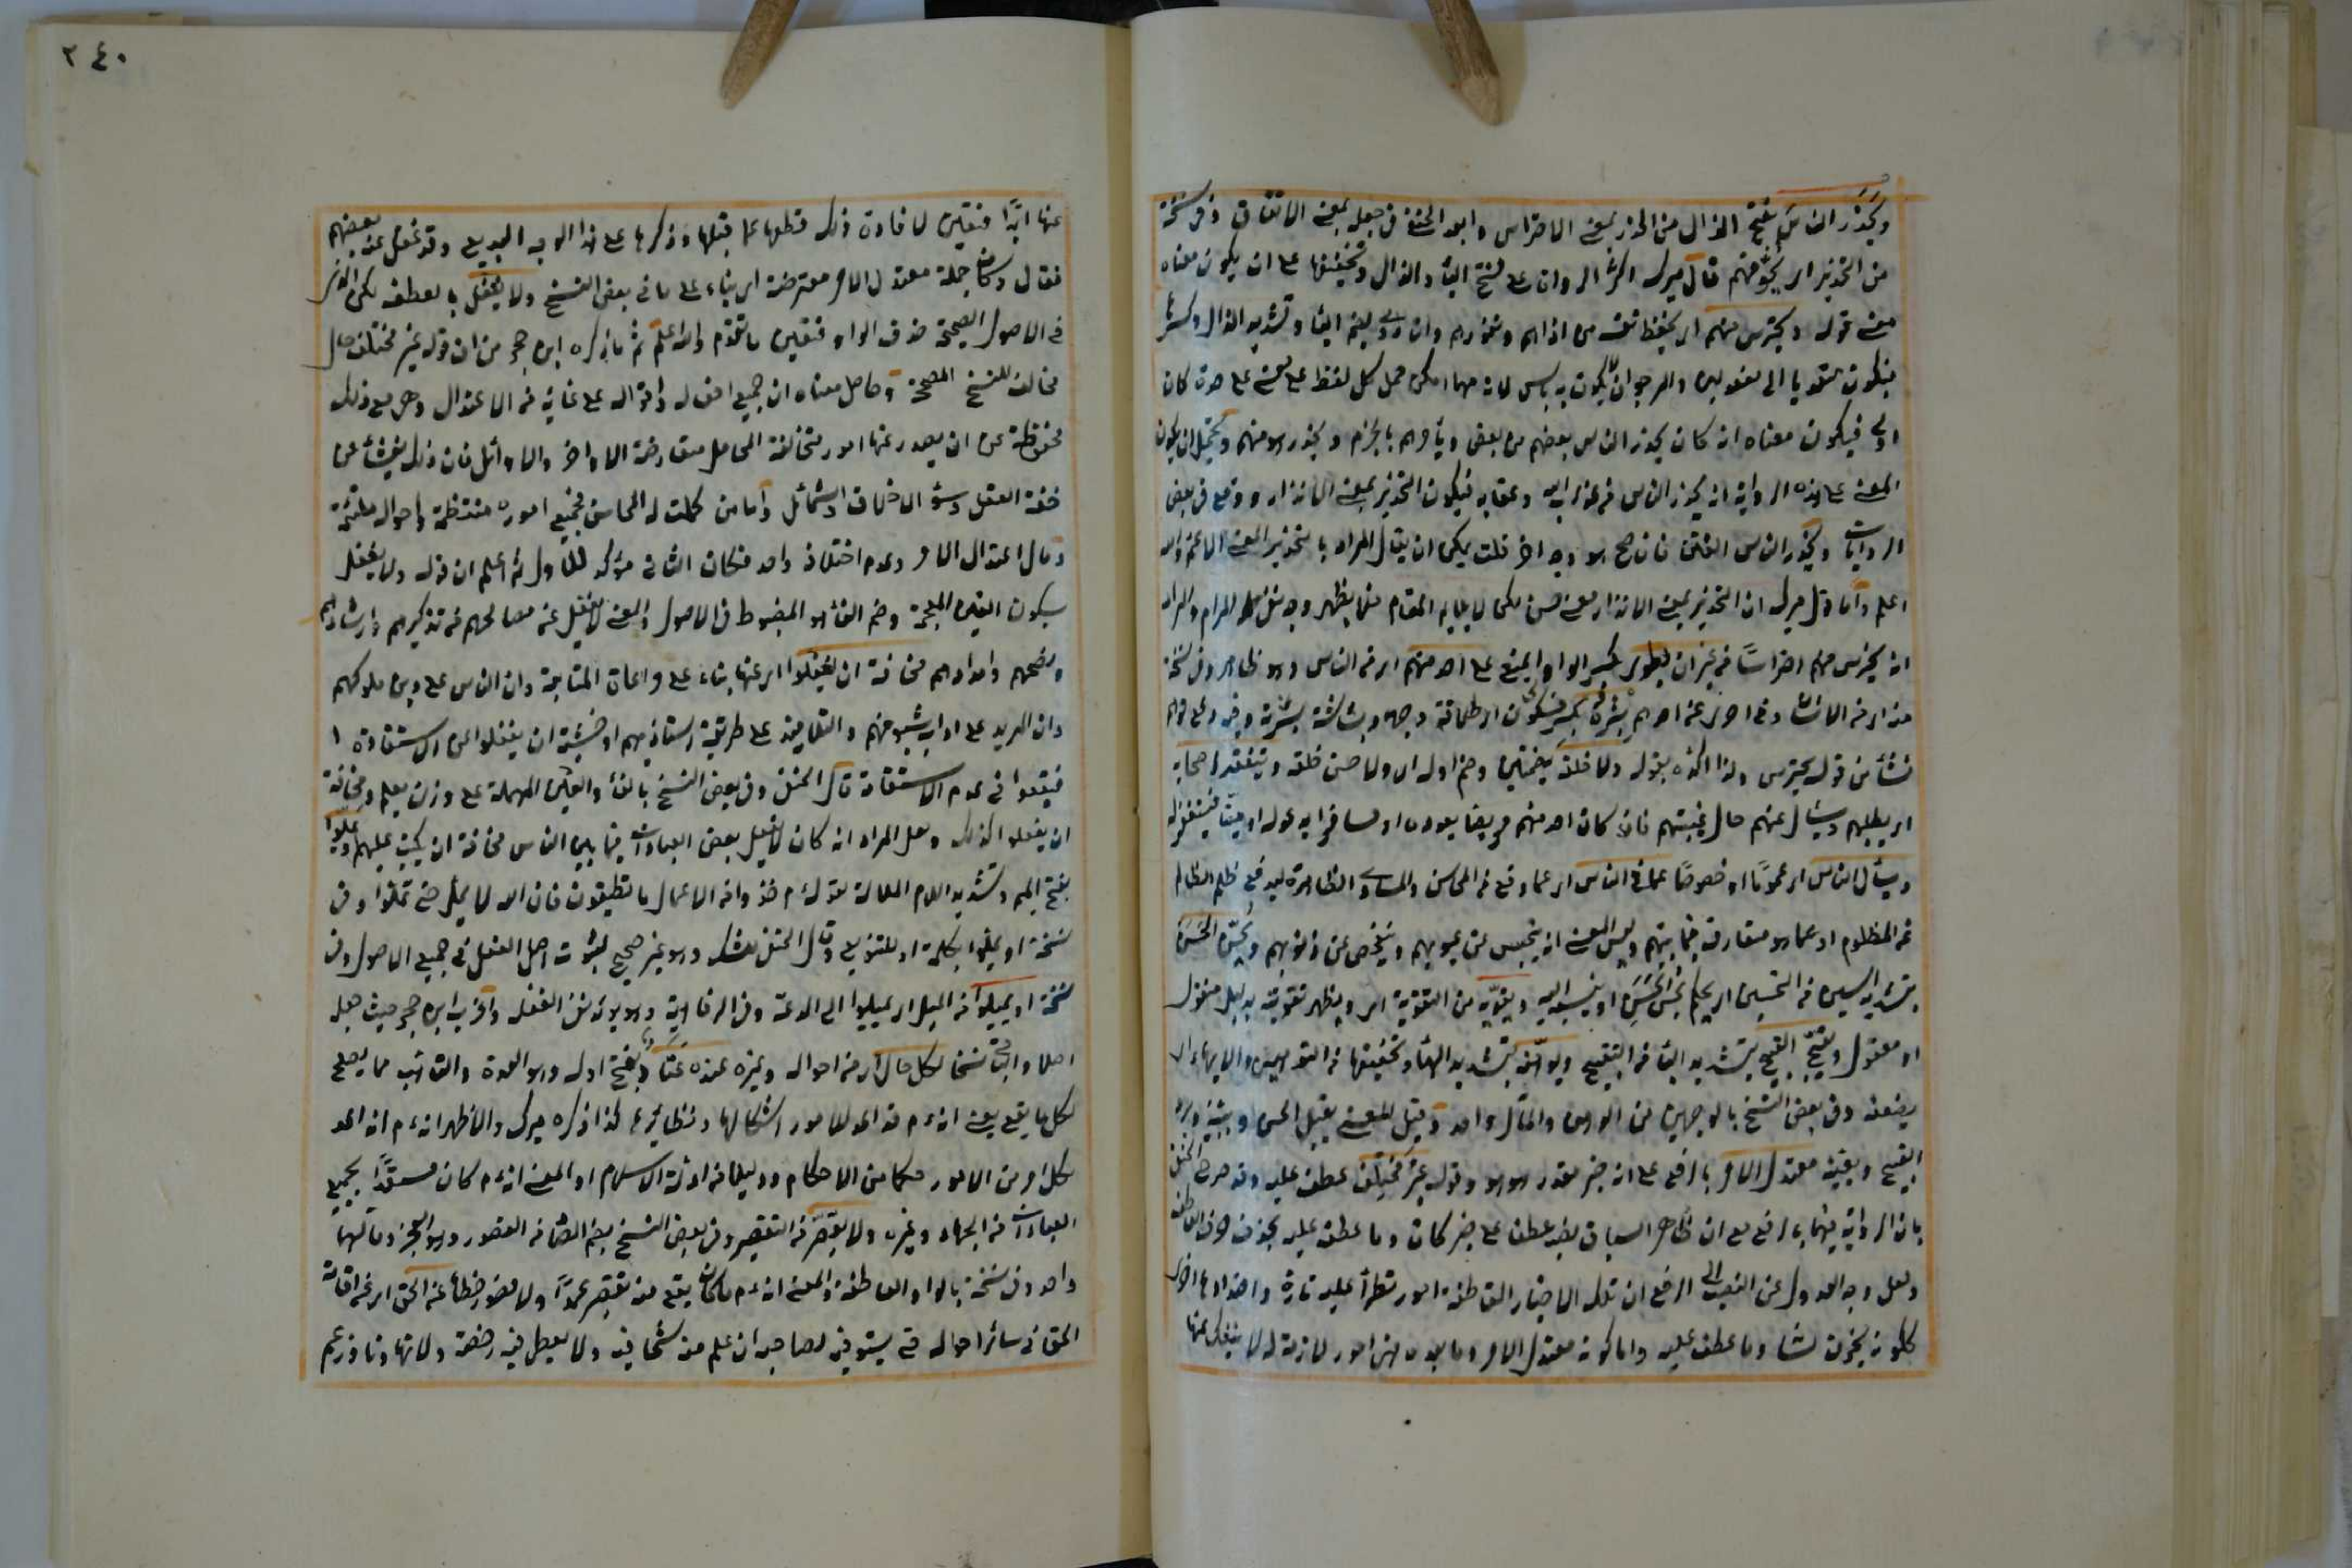 ويحذر الناس بفتح الذال من الحذر بمعنى الاحتراس وابعد الحنفي في جعله بمعنى الاتقاق وفي نسخة
من التحذير اي يخوفهم قال ميرك اكثر الرواة على فتح الياء والذال وتخفيفها على ان يكون معناه
معنى قوله ويحترس منهم اي يتحفظ نفسه من اذاهم ونفورهم وان روي بضم الياء وتشديد الذال وكسرها
فيكون متعديا الى مفعولين والمرجو ان لا يكون به باس لانه مهما امكن حمل كل لفظ على معنى على حدة كان
اولى فيكون معناه انه كان يحذر الناس بعضهم من بعض ويأمرهم بالحزم ويحذر هو منهم ويحتمل ان يكون
المعنى على هذه الرواية انه يحذر الناس من عذاب الله وعقابه فيكون التحذير بمعنى الانذار ووقع في بعض
الروايات ويحذر الناس الفتن فان صح هو وجه اخر قلت يمكن ان يقال المراد بالتحذير المعنى الاعم والله
اعلم وأما قول ميرك ان التحذير بمعنى الانذار معنى حسن لكن لا يلايم المقام فما يظهر وجه نفي المرام والمراد
انه يحترس منهم احتراسًا من غير ان يطوي بكسر الواو اي يمنع على احد منهم اي من الناس وهو ظاهر وفي نسخة
عنه اي من الانسان وفي اخرى عن احدهم بشره بكسر فسكون اي طلاقة وجهه وبشاشة بشرته وفيه دفع توهم
نشأ من قوله يحترس ولذا اكده بقوله ولا خلقه بضمتين وضم اوله اي ولا حسن خلقه ويتفقد اصحابه
اي يطلبهم ويسأل عنهم حال غيبتهم فان كان احد منهم مريضا يعوده او مسافرا يدعو له او ميتا فيستغفر له
ويسأل الناس اي عمومًا او خصوصًا عما في الناس اي عما وقع من المحاسن والمساوي الظاهرة ليدفع ظلم الظالم
عن المظلوم او عما هو متعارف فيما بينهم وليس المعنى انه يتجسس عن عيوبهم ويتفحص عن ذنوبهم ويحسن الحسن
بتشديد السين من التحسين اي يحكم بحسن الحسن او ينسبه اليه ويقويه من التقوية اي ويظهر تقويته بدليل منقول
او معقول ويقبح القبيح بتشديد الباء من التقبيح ويوهنه بتشديد الهاء وتخفيفها من التوهين والايهان اي
يضعفه وفي بعض النسخ بالوجهين من الوهن والمآل واحد وقيل المعنى يقبل الحسن
القبيح ويقينه معتدل الامر بالرفع على انه خبر مقدر هو هو وقوله غير مختلف عطف عليه وقد صرح الحنفي
بان الرواية فيهما بالرفع مع ان ظاهر السياق نصبه عطف على خبر كان وما عطف عليه بحذف حرف العاطف
ولعل وجه العدول عن النصب الى الرفع ان تلك الاخبار العاطفة امور تطرأ عليه تارة واضدادها اخرى
ككونه يخزن لسانه وما عطف عليه واما كونه معتدل الامر وما بعده فهي امور لازمة له لا ينفك عنها
٢٤٠
عنها ابدًا فتعين لافادة ذلك قطعها عما قبلها وذكرها على هذا الوجه البديع وقد غفل عنه بعضهم
فقال وكان جملة معتدل الامر معترضة اي بناء على ما في بعض النسخ ولا يغفل بالعطف لكن الذي
في الاصول الصحيحة حذف الواو فتعين ما تقدم والله اعلم ثم ما ذكره ابن حجر من ان قوله غير مختلف حال
مخالف للنسخ المصححة وحاصل معناه ان جميع افعاله واقواله على غاية من الاعتدال وهي مع ذلك
محفوظة عن ان يصدر عنها امور متخالفة المحامل متعارضة الاواخر والاوائل فان ذلك ينشأ عن
خفة العقل وسوء الاخلاق والشمائل وأما من كملت له المحاسن فجميع اموره منتظمة واحواله ملتئمة
ومآل اعتدال الامر وعدم اختلافه واحد فكان الثاني مؤكد للاول ثم اعلم ان قوله ولا يغفل
بسكون الغين المعجمة وضم الفاء هو المضبوط في الاصول والمعنى لا يغفل عن مصالحهم من تذكيرهم وارشادهم
ونصحهم وامدادهم مخافة ان يغفلوا اي عنها بناء على مراعاة المتابعة وان الناس على دين ملوكهم
وان المريد على اداب شيخهم والتلاميذ على طريقة استاذيهم او خشية ان يغفلوا عن الاستفادة
فيقعوا في عدم الاستقامة قال الحنفي وفي بعض النسخ بالفاء والعين المهملة على وزن يعلم ومخافة
ان يفعلوا كذلك ولعل المراد انه كان لا يفعل بعض العبادات فيما بين الناس مخافة ان يكتب عليهم ويملوا
بفتح الميم وتشديد اللام الملالة لقوله ﵇ خذوا من الاعمال ما تطيقون فان الله لا يمل حتى تملوا وفي
نسخة او يملوا بكلمة او للتنويع وقال الحنفي للشك وهو غير صحيح لثبوت اصل الفعل في جميع الاصول وفي
نسخة او يميلوا من الميل اي يميلوا الى الدعة وفي الرفاهية وهو يؤيد نفي الغفلة واغرب ابن حجر حيث جعله
اصلا والباقي نسخا لكل حال اي من احواله وغيره عنده عتاد بفتح اوله وهو العدة والتأهب مما يصلح
لكل ما يقع يعني انه ﵇ قد اعد للامور اشكالها ونظائرها كذا ذكره ميرك والاظهر انه ﵇ اعد
لكل امر من الامور حكما من الاحكام ودليلا من ادلة الاسلام او المعنى انه ﵇ كان مستعدًا بجميع
العبادات من الجهاد وغيره ولا يقصر من التقصير وفي بعض النسخ بضم الصاد من القصور وهو العجز ومآلهما
واحد وفي نسخة بالواو العاطفة والمعنى انه ﵇ ما كان يقع منه تقصير عمدًا ولا قصور خطأ عن الحق اي عن اقامة
الحق في سائر احواله حتى يستوفيه لصاحبه ان علم منه شحا فيه ولا يعطل فيه رخصة ولا تهاونا وزعم